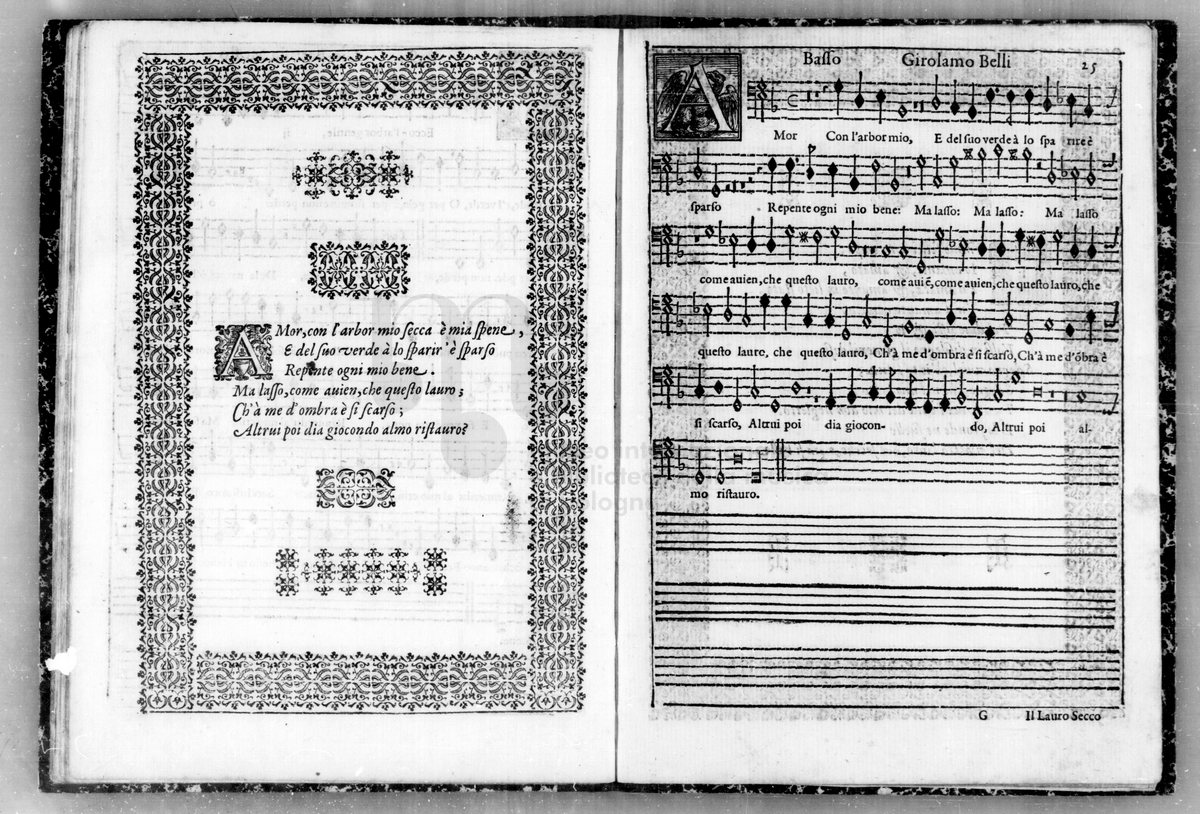 AMor, con l'arbor mio secca è mia spene,
E del suo verde à lo sparir' è sparso
Repente ogni mio bene.
Ma lasso, come auien, che questo lauro;
Ch'à me d'ombra è si scarso;
Altrui poi dia giocondo almo ristauro?
Basso Girolamo Belli 25
AMor Con l'arbor mio, E del suo verde à lo spa rire è
sparso Repente ogni mio bene: Ma lasso: Ma lasso: Ma lasso
come auien, che questo lauro, come aui ẽ, come auien, che questo lauro, che
questo laure, che questo lauro, Ch'à me d'ombra è si scarso, Ch'à me d'õbra è
si scarso, Altrui poi dia giocon- do, Altrui poi al-
mo ristauro.
G Il Lauro Secco